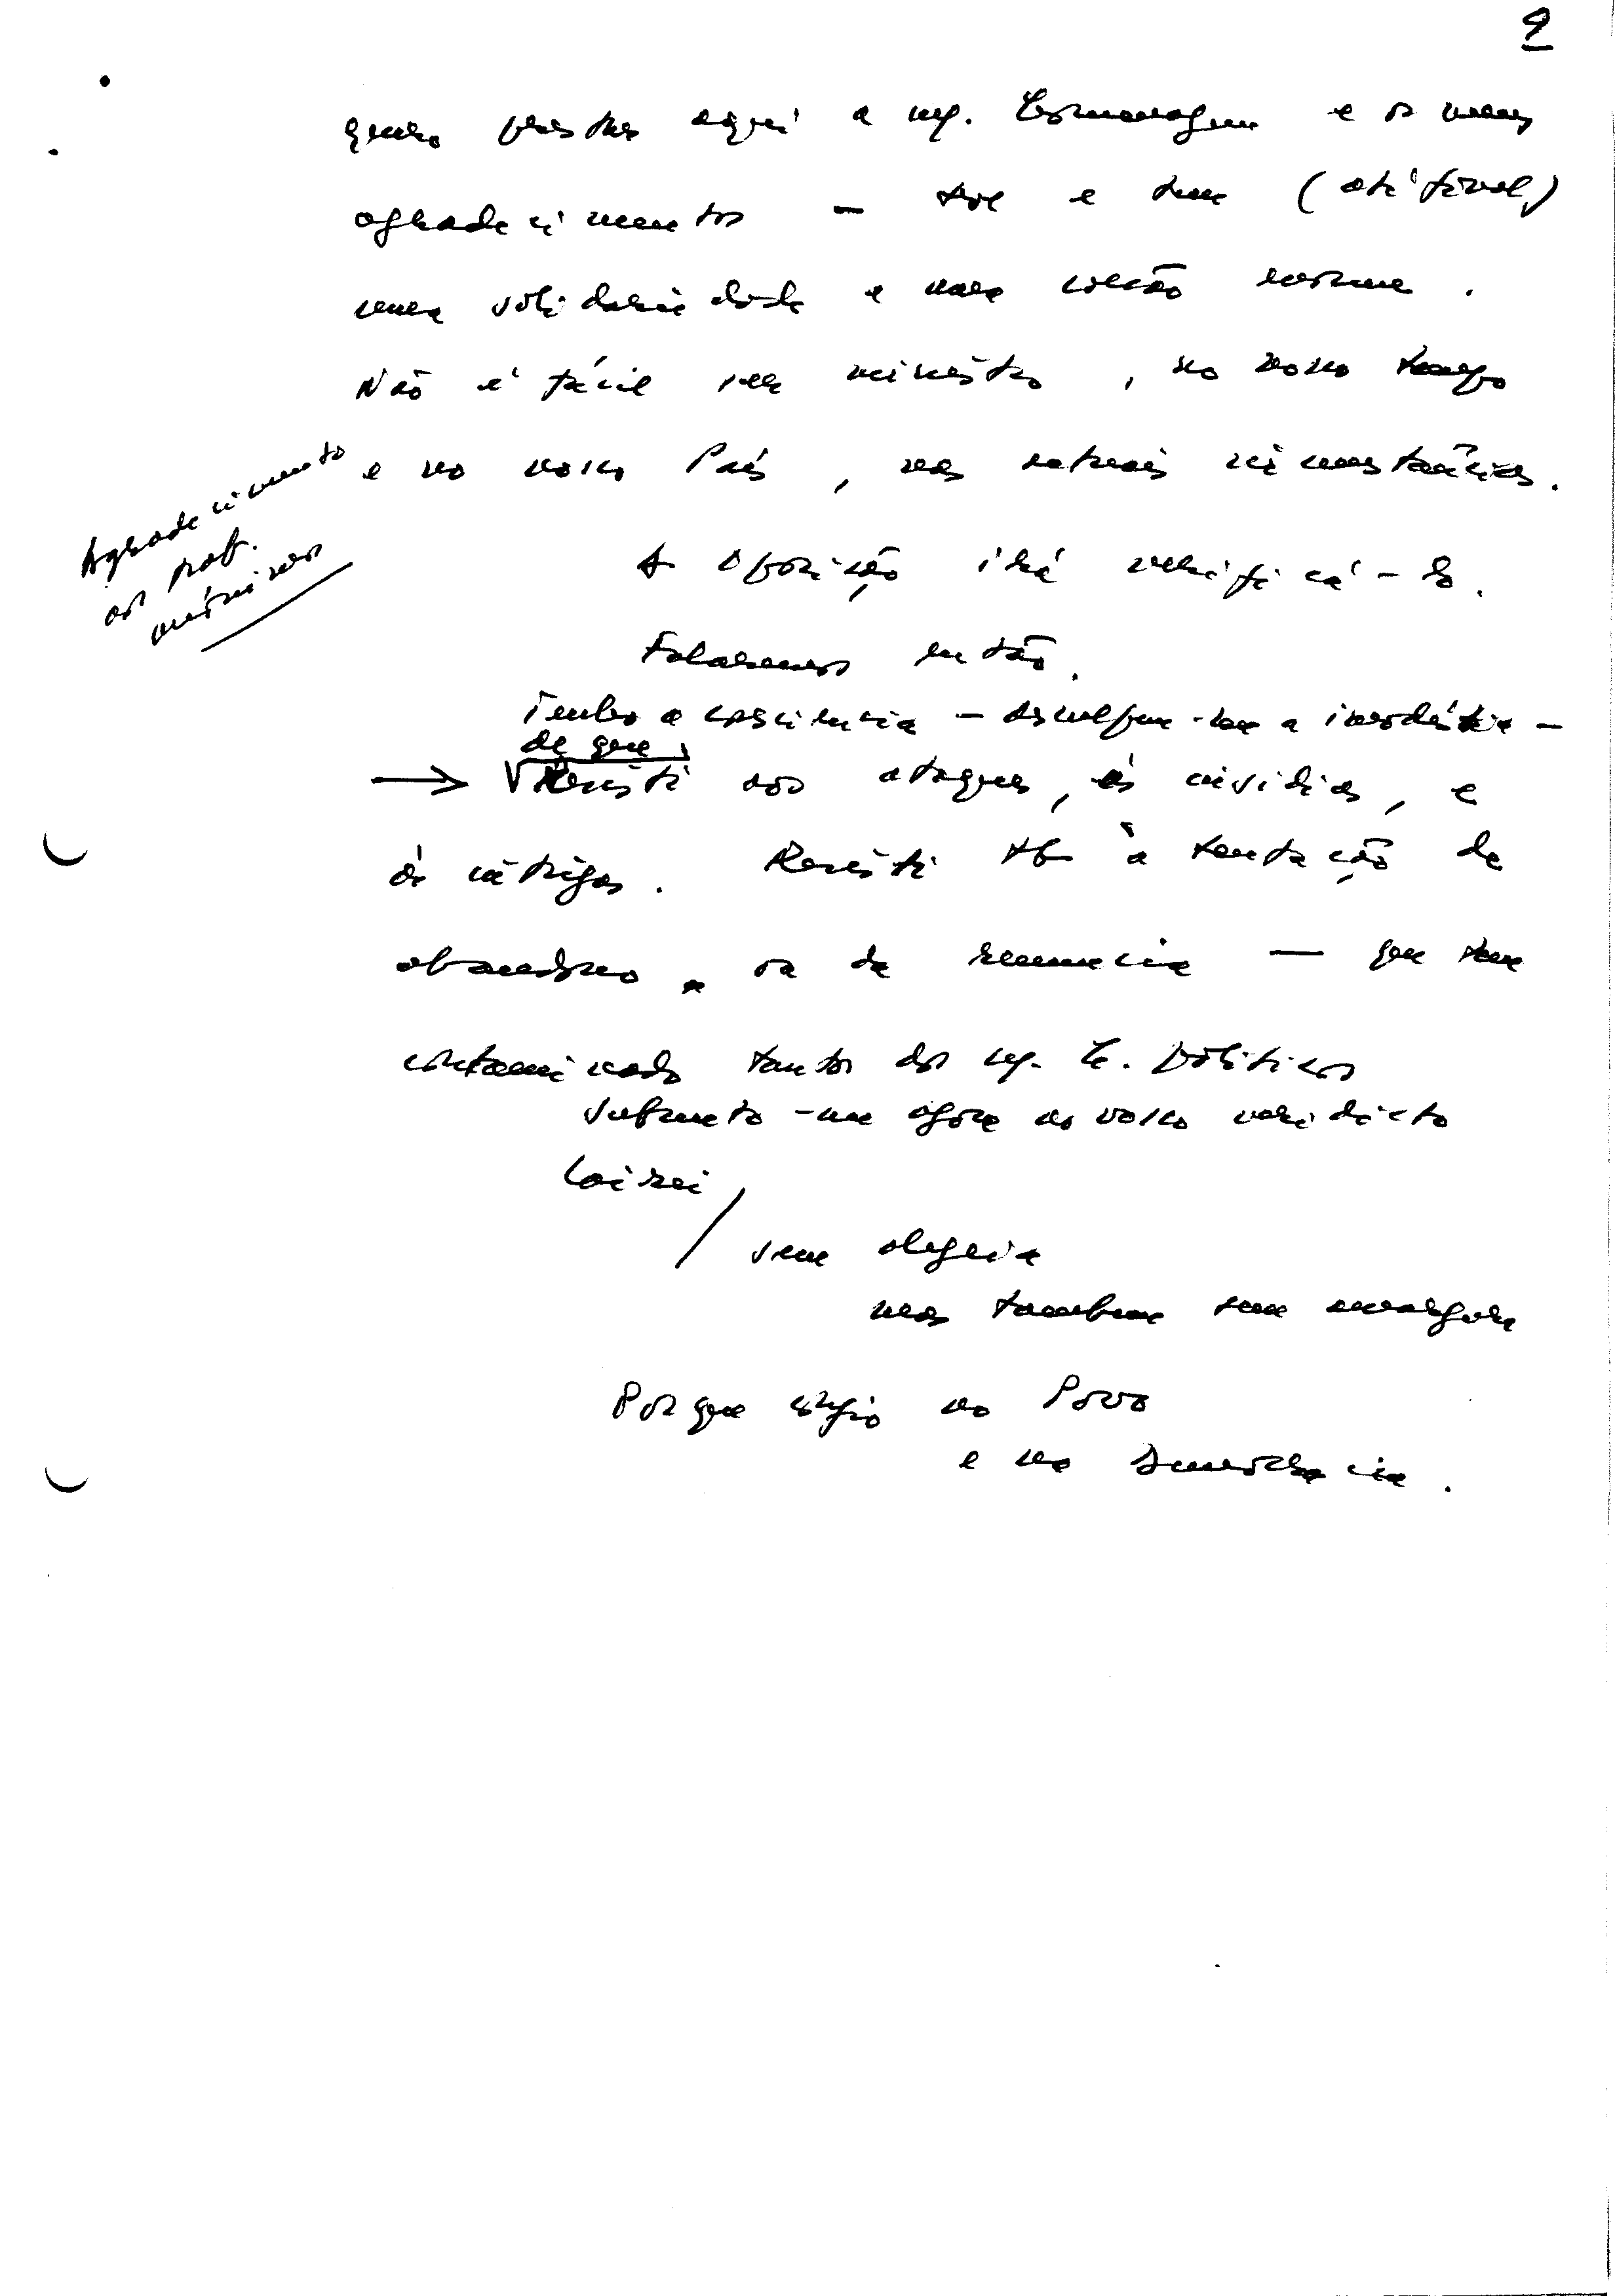 9
quero prestar aqui a m/. homenagem e os meus
agradecimentos – houve e tem (até final)
uma solidariedade e uma coesão enorme.
Não é fácil ser ministro, no nosso tempo
e no nosso País, nas actuais circunstâncias.
Agradecimento
aos prof.
ministros
A Oposição irá verificá-lo.
Falaremos então.
Tenho a consciencia – desculpem-me a imodéstia –
de que
→ Resisti aos ataques, às insidias, e
às intrigas. Resisti tb à tentação de
abandono, ou da renuncia — que tem
contaminado tantos dos n/. h. politicos
Submeto-me agora ao vosso veridicto
Cairei
/ sem alegria
mas tambem sem amargura
Porque confio no Povo
e na Democracia.